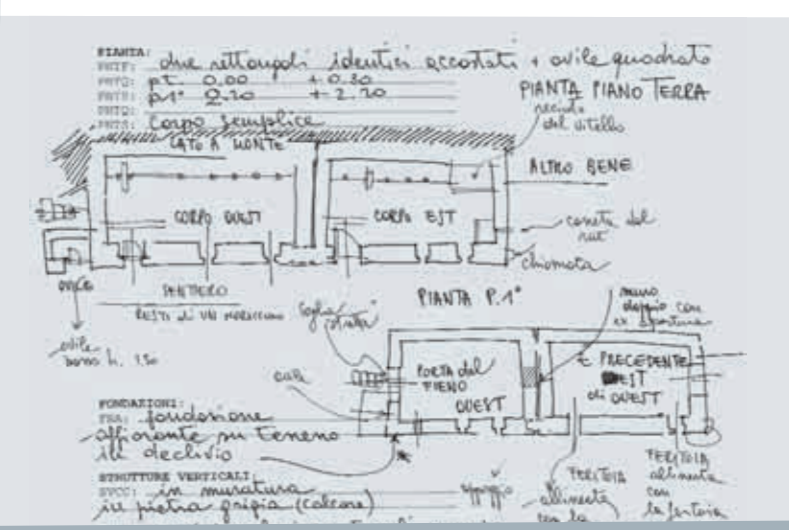 PIANTA:
PNTF: due rettangoli identici accostati + ovile quadrato
PNTQ: p.t. 0.00 + 0.30
p.1° 2.20 + 2.20
PNTQ:
PNTS: Corpo semplice
PIANTA PIANO TERRA
recinto
del vitello
LATO A MONTE
ALTRO BENE
CORPO OVEST
CORPO EST
del
chiomata
SENTIERO
RESTI di UN
PIANTA P.1°
muro
doppio con
ex apertura
ovile
h. 1.50
PORTA del
FIENO
OVEST
E PRECEDENTE
EST
di OVEST
FONDAZIONI:
FNA: fondazione
affiorante su terreno
in declivio
STRUTTURE VERTICALI:
SVCC: in muratura
in pietra grigia (calcare)
appoggio
FERITOIA
allineata
con la
FERITOIA
allineata
con
la feritoia